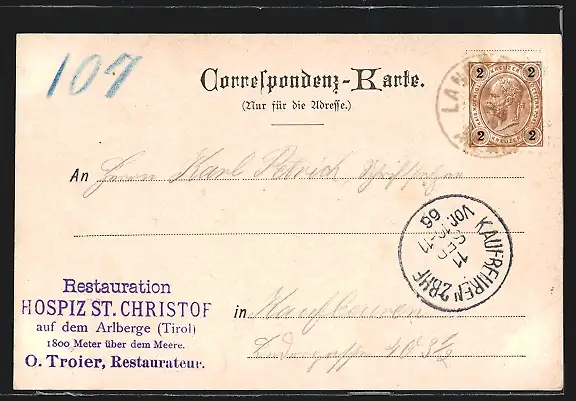 107
Correspondenz-Karte.
(Nur für die Adresse.)
2 KREUZER 2
2 KREUZER 2
LAN
An Herrn Karl Petrich,
KAUFBEUREN 2 BHF
11
SEP
VOR. 10-11
99
Restauration
HOSPIZ ST. CHRISTOF
auf dem Arlberge (Tirol)
1800 Meter über dem Meere.
O. Troier, Restaurateur.
in Kaufbeuren
40 3 1/2